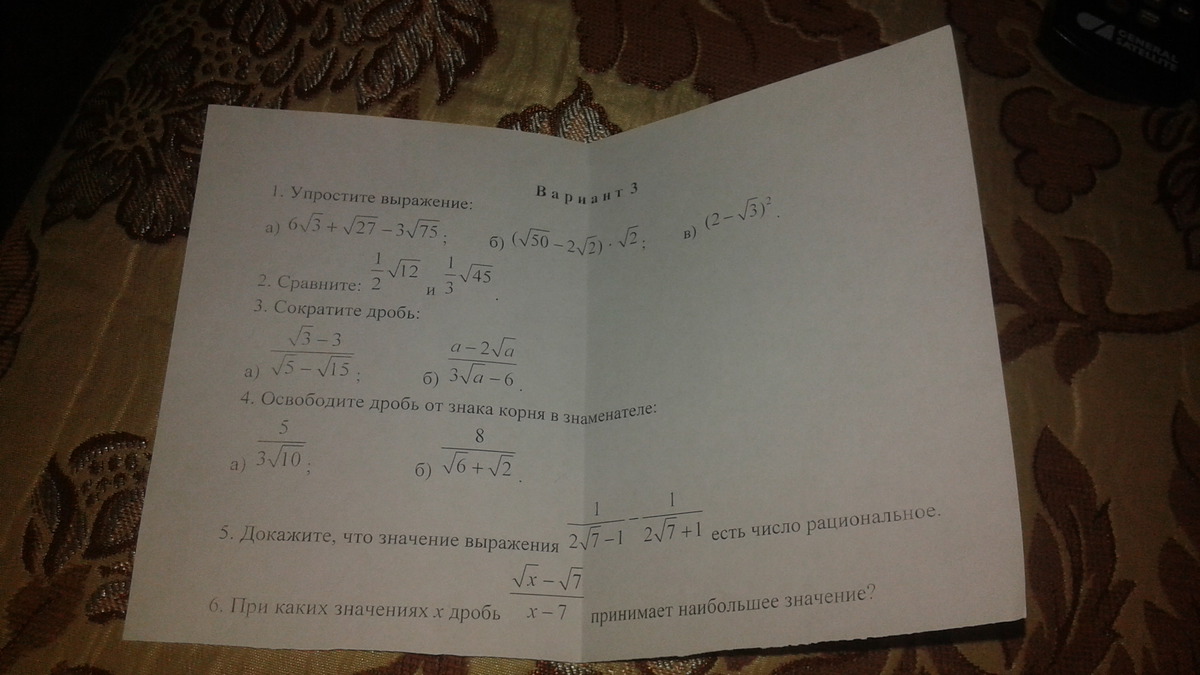 GENERAL
SATELLITE
Вариант 3
1. Упростите выражение:
а) 6√3 + √27 − 3√75; б) (√50 − 2√2) · √2; в) (2 − √3)².
2. Сравните: 1/2 √12 и 1/3 √45.
3. Сократите дробь:
а) (√3 − 3)/(√5 − √15); б) (a − 2√a)/(3√a − 6).
4. Освободите дробь от знака корня в знаменателе:
а) 5/(3√10); б) 8/(√6 + √2).
5. Докажите, что значение выражения 1/(2√7 − 1) − 1/(2√7 + 1) есть число рациональное.
6. При каких значениях x дробь (√x − √7)/(x − 7) принимает наибольшее значение?